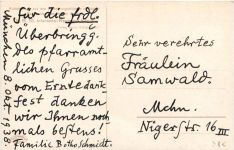 Für die frdl.
Überbringg.
des pfarramt-
lichen Grusses
vom Erntedank
fest danken
wir Ihnen noch
mals bestens!
Familie Botho Schmidt.
München 8. Okt. 1938.
Sehr verehrtes
Fräulein
Samwald.
Mchn.
Nigerstr. 16 III